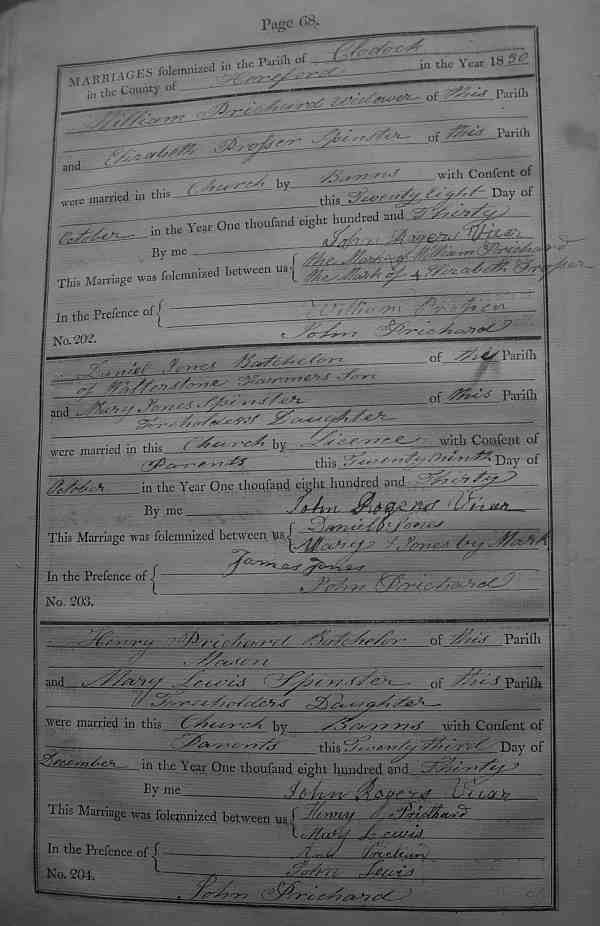 Page 68.
MARRIAGES solemnized in the Parish of Clodock
in the County of Hereford in the Year 1830
William Prichard widower of this Parish
and Elizabeth Prosser Spinster of this Parish
were married in this Church by Banns with Consent of
this Twenty Eight Day of
October in the Year One thousand eight hundred and Thirty
By me John Rogers Vicar
This Marriage was solemnized between us the Mark of William Prichard
the Mark of + Elizabeth Prosser
In the Presence of William
John Prichard
No. 202.
Daniel Jones Batchelor of this Parish
of Walterstone Farmers Son
and Mary Jones Spinster of this Parish
Freeholders Daughter
were married in this Church by Licence with Consent of
Parents this Twenty ninth Day of
October in the Year One thousand eight hundred and Thirty
By me John Rogers Vicar
This Marriage was solemnized between us Daniel Jones
Mary + Jones by Mark
In the Presence of James Jones
John Prichard
No. 203.
Henry Prichard Batchelor of this Parish
Mason
and Mary Lewis Spinster of this Parish
Freeholders Daughter
were married in this Church by Banns with Consent of
Parents this Twenty third Day of
December in the Year One thousand eight hundred and Thirty
By me John Rogers Vicar
This Marriage was solemnized between us Henry Pridhard
Mary Lewis
In the Presence of
John Lewis
No. 204.
John Prichard